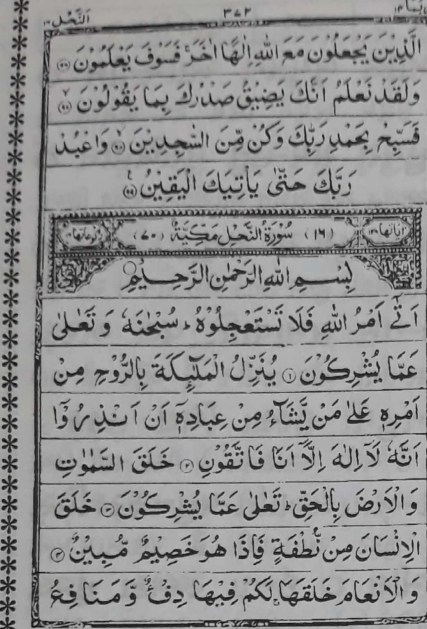 النحل ٣٧٢ ربما ١٤
الَّذِيْنَ يَجْعَلُوْنَ مَعَ اللّٰهِ اِلٰهًا اٰخَرَ ۚ فَسَوْفَ يَعْلَمُوْنَ ﴿٩٦﴾
وَلَقَدْ نَعْلَمُ اَنَّكَ يَضِيْقُ صَدْرُكَ بِمَا يَقُوْلُوْنَ ﴿٩٧﴾
فَسَبِّحْ بِحَمْدِ رَبِّكَ وَكُنْ مِّنَ السّٰجِدِيْنَ ﴿٩٨﴾ وَاعْبُدْ
رَبَّكَ حَتّٰى يَاْتِيَكَ الْيَقِيْنُ ﴿٩٩﴾
(١٦) سُوْرَةُ النَّحْلِ مَكِّيَّةٌ (٧٠)
بِسْمِ اللّٰهِ الرَّحْمٰنِ الرَّحِيْمِ
اَتٰٓى اَمْرُ اللّٰهِ فَلَا تَسْتَعْجِلُوْهُ ؕ سُبْحٰنَهٗ وَ تَعٰلٰى
عَمَّا يُشْرِكُوْنَ ﴿١﴾ يُنَزِّلُ الْمَلٰٓئِكَةَ بِالرُّوْحِ مِنْ
اَمْرِهٖ عَلٰى مَنْ يَّشَآءُ مِنْ عِبَادِهٖۤ اَنْ اَنْذِرُوْۤا
اَنَّهٗ لَاۤ اِلٰهَ اِلَّاۤ اَنَا فَاتَّقُوْنِ ﴿٢﴾ خَلَقَ السَّمٰوٰتِ
وَ الْاَرْضَ بِالْحَقِّ ؕ تَعٰلٰى عَمَّا يُشْرِكُوْنَ ﴿٣﴾ خَلَقَ
الْاِنْسَانَ مِنْ نُّطْفَةٍ فَاِذَا هُوَ خَصِيْمٌ مُّبِيْنٌ ﴿٤﴾
وَ الْاَنْعَامَ خَلَقَهَا ۚ لَكُمْ فِيْهَا دِفْءٌ وَّ مَنَافِعُ